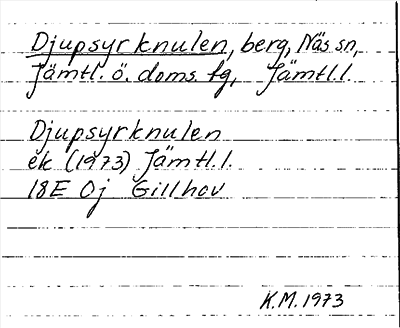 Djupsyrknulen, berg, Näs sn,
Jämtl. ö. doms. fg, Jämtl. l.
Djupsyrknulen
ek (1973) Jämtl. l.
18E 0j Gillhov
K.M. 1973